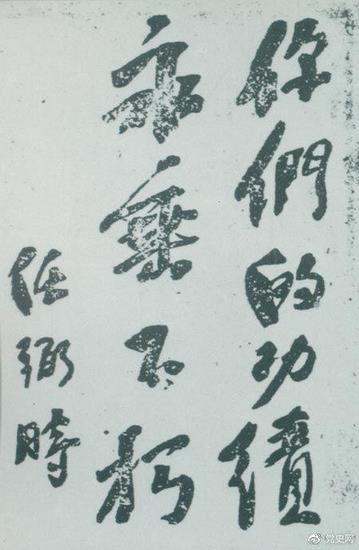 你們的功績
永垂不朽
任弼時
@党史网